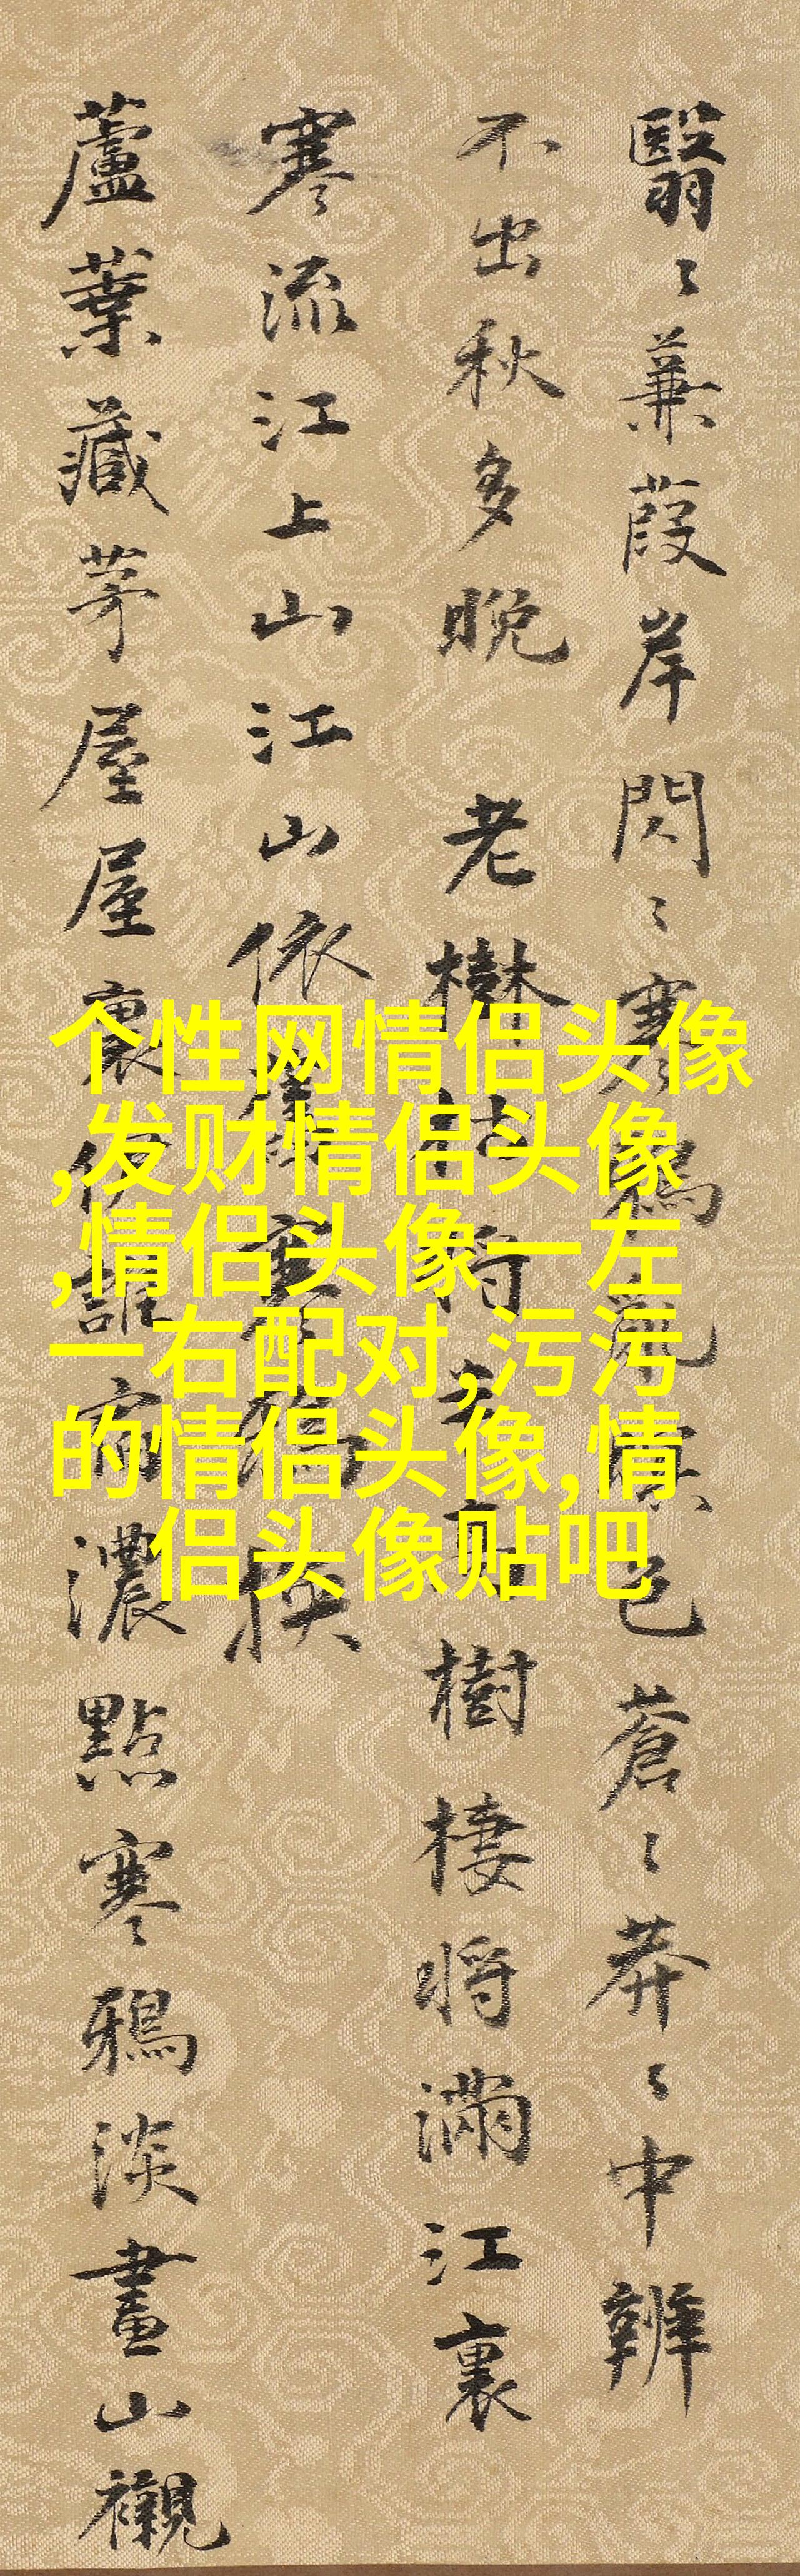 翳〻蒹葭岸閃〻寒鴉亂烟色蒼〻莽〻中辨
不出秋多晚 老樹枯將
樹棲將滿江裏
寒流江上山江山依
蘆葉藏茅屋屋裏伊誰宿濃點寒鴉淡畫山襯
个性网情侣头像
,发财情侣头像
,情侣头像一左
一右配对,污污
的情侣头像,情
侣头像贴吧